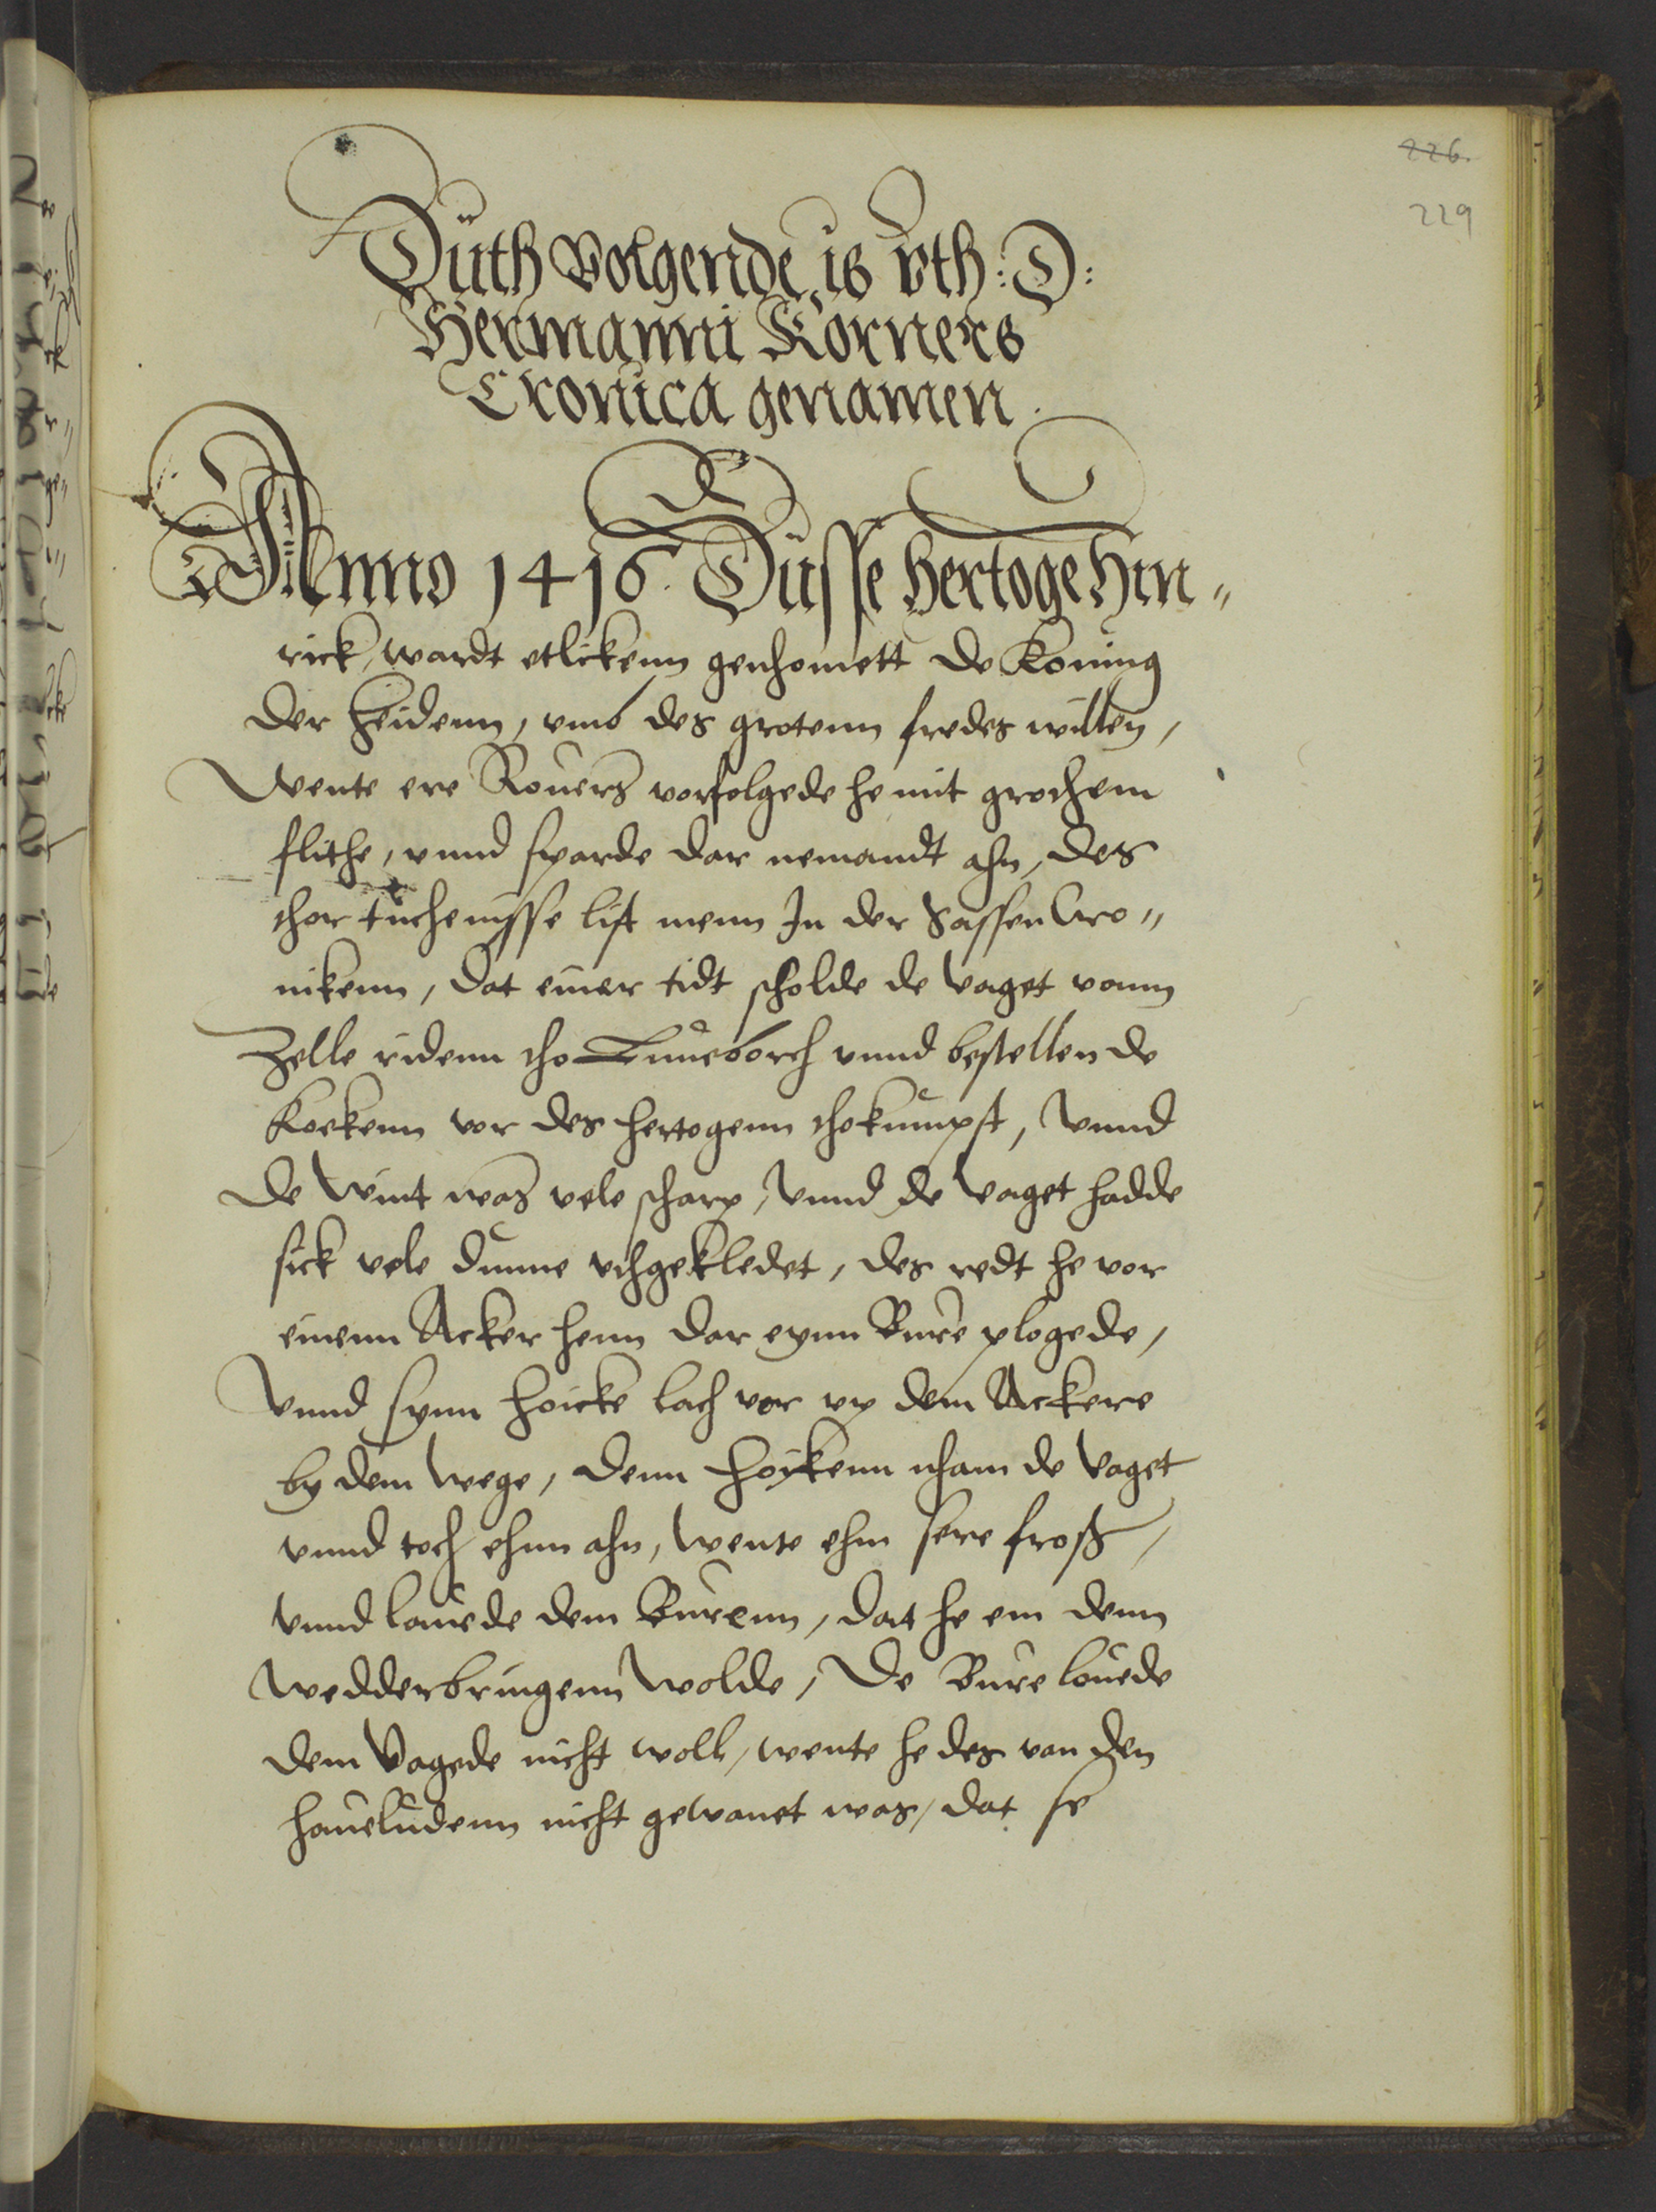 226.
229
Düth Volgende is vth: D:
Hermanni Korners
Cronica genamen.
Anno 1416. Düsse Hertoge Hin„
rick, wardt etlickenn genhomett de Koning
der Heidenn, vmb des grotenn fredes willen,
Wente ere Rouers vorfolgede he mit grothem
flithe, vnnd sparde dar nemandt ahn, des
thor tuchenisse list menn In der Sassen Cro„
nikenn, dat einer tidt scholde de Vaget vann
Zelle ridenn tho Luneborch vnnd bestellen de
Koekenn vor des hertogenn thokumpst, Vnnd
de Wint was vele scharp, Vnnd de Vaget hadde
sick vele dunne vthgekledet, des redt he vor
einenn Acker henn dar eynn Bure plogede,
Vnnd synn Hoicke lach vor vp dem Ackere
by dem Wege, denn Hoykenn nham de Vaget
vnnd toch ehnn ahn, Wente ehm sere froß,
Vnnd lauede dem Burenn, dat he em denn
Wedderbringenn Wolde, De Bure louede
dem Vagede nicht woll, wente he des van den
Haueludenn nicht gewanet was, dat se